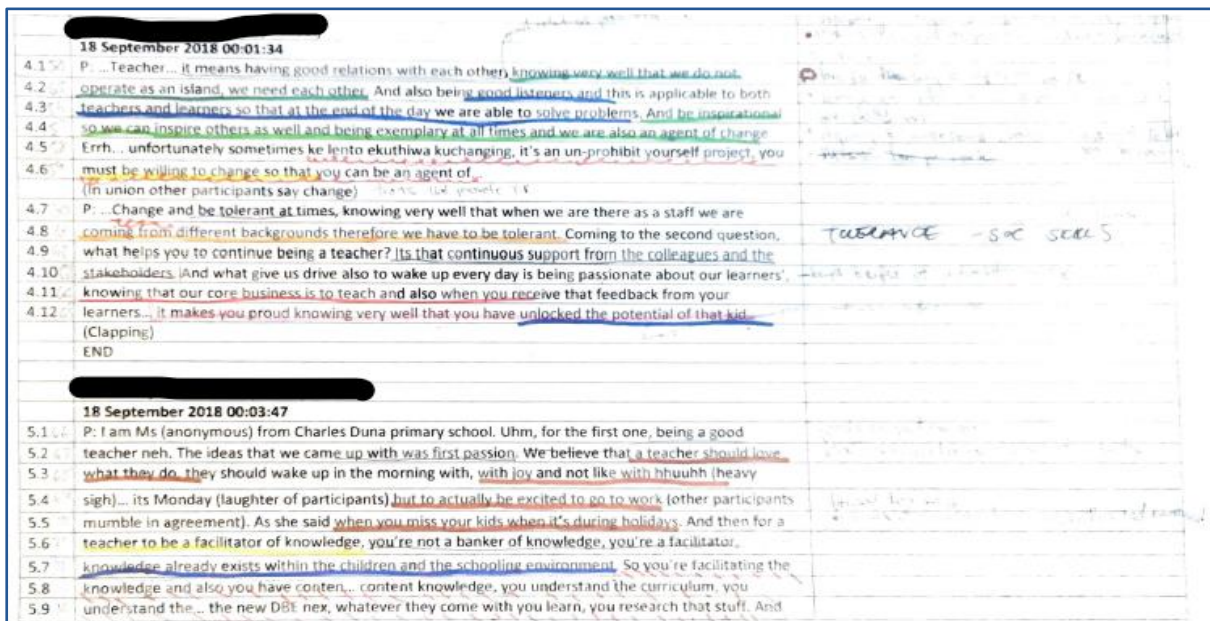 18 September 2018 00:01:34
4.1 P: ...Teacher... it means having good relations with each other, knowing very well that we do not
4.2 operate as an island, we need each other. And also being good listeners and this is applicable to both
4.3 teachers and learners so that at the end of the day we are able to solve problems. And be inspirational
4.4 so we can inspire others as well and being exemplary at all times and we are also an agent of change
4.5 Errh... unfortunately sometimes ke lento ekuthiwa kuchanging, it's an un-prohibit yourself project, you
4.6 must be willing to change so that you can be an agent of...
(In union other participants say change)
4.7 P: ...Change and be tolerant at times, knowing very well that when we are there as a staff we are
4.8 coming from different backgrounds therefore we have to be tolerant. Coming to the second question, TOLERANCE - SOC SKILLS
4.9 what helps you to continue being a teacher? Its that continuous support from the colleagues and the
4.10 stakeholders. And what give us drive also to wake up every day is being passionate about our learners',
4.11 knowing that our core business is to teach and also when you receive that feedback from your
4.12 learners... it makes you proud knowing very well that you have unlocked the potential of that kid...
(Clapping)
END
18 September 2018 00:03:47
5.1 P: I am Ms (anonymous) from Charles Duna primary school. Uhm, for the first one, being a good
5.2 teacher neh. The ideas that we came up with was first passion. We believe that a teacher should love
5.3 what they do, they should wake up in the morning with, with joy and not like with hhuuhh (heavy
5.4 sigh)... its Monday (laughter of participants) but to actually be excited to go to work (other participants
5.5 mumble in agreement). As she said when you miss your kids when it's during holidays. And then for a
5.6 teacher to be a facilitator of knowledge, you're not a banker of knowledge, you're a facilitator,
5.7 knowledge already exists within the children and the schooling environment. So you're facilitating the
5.8 knowledge and also you have conten... content knowledge, you understand the curriculum, you
5.9 understand the... the new DBE nex, whatever they come with you learn, you research that stuff. And